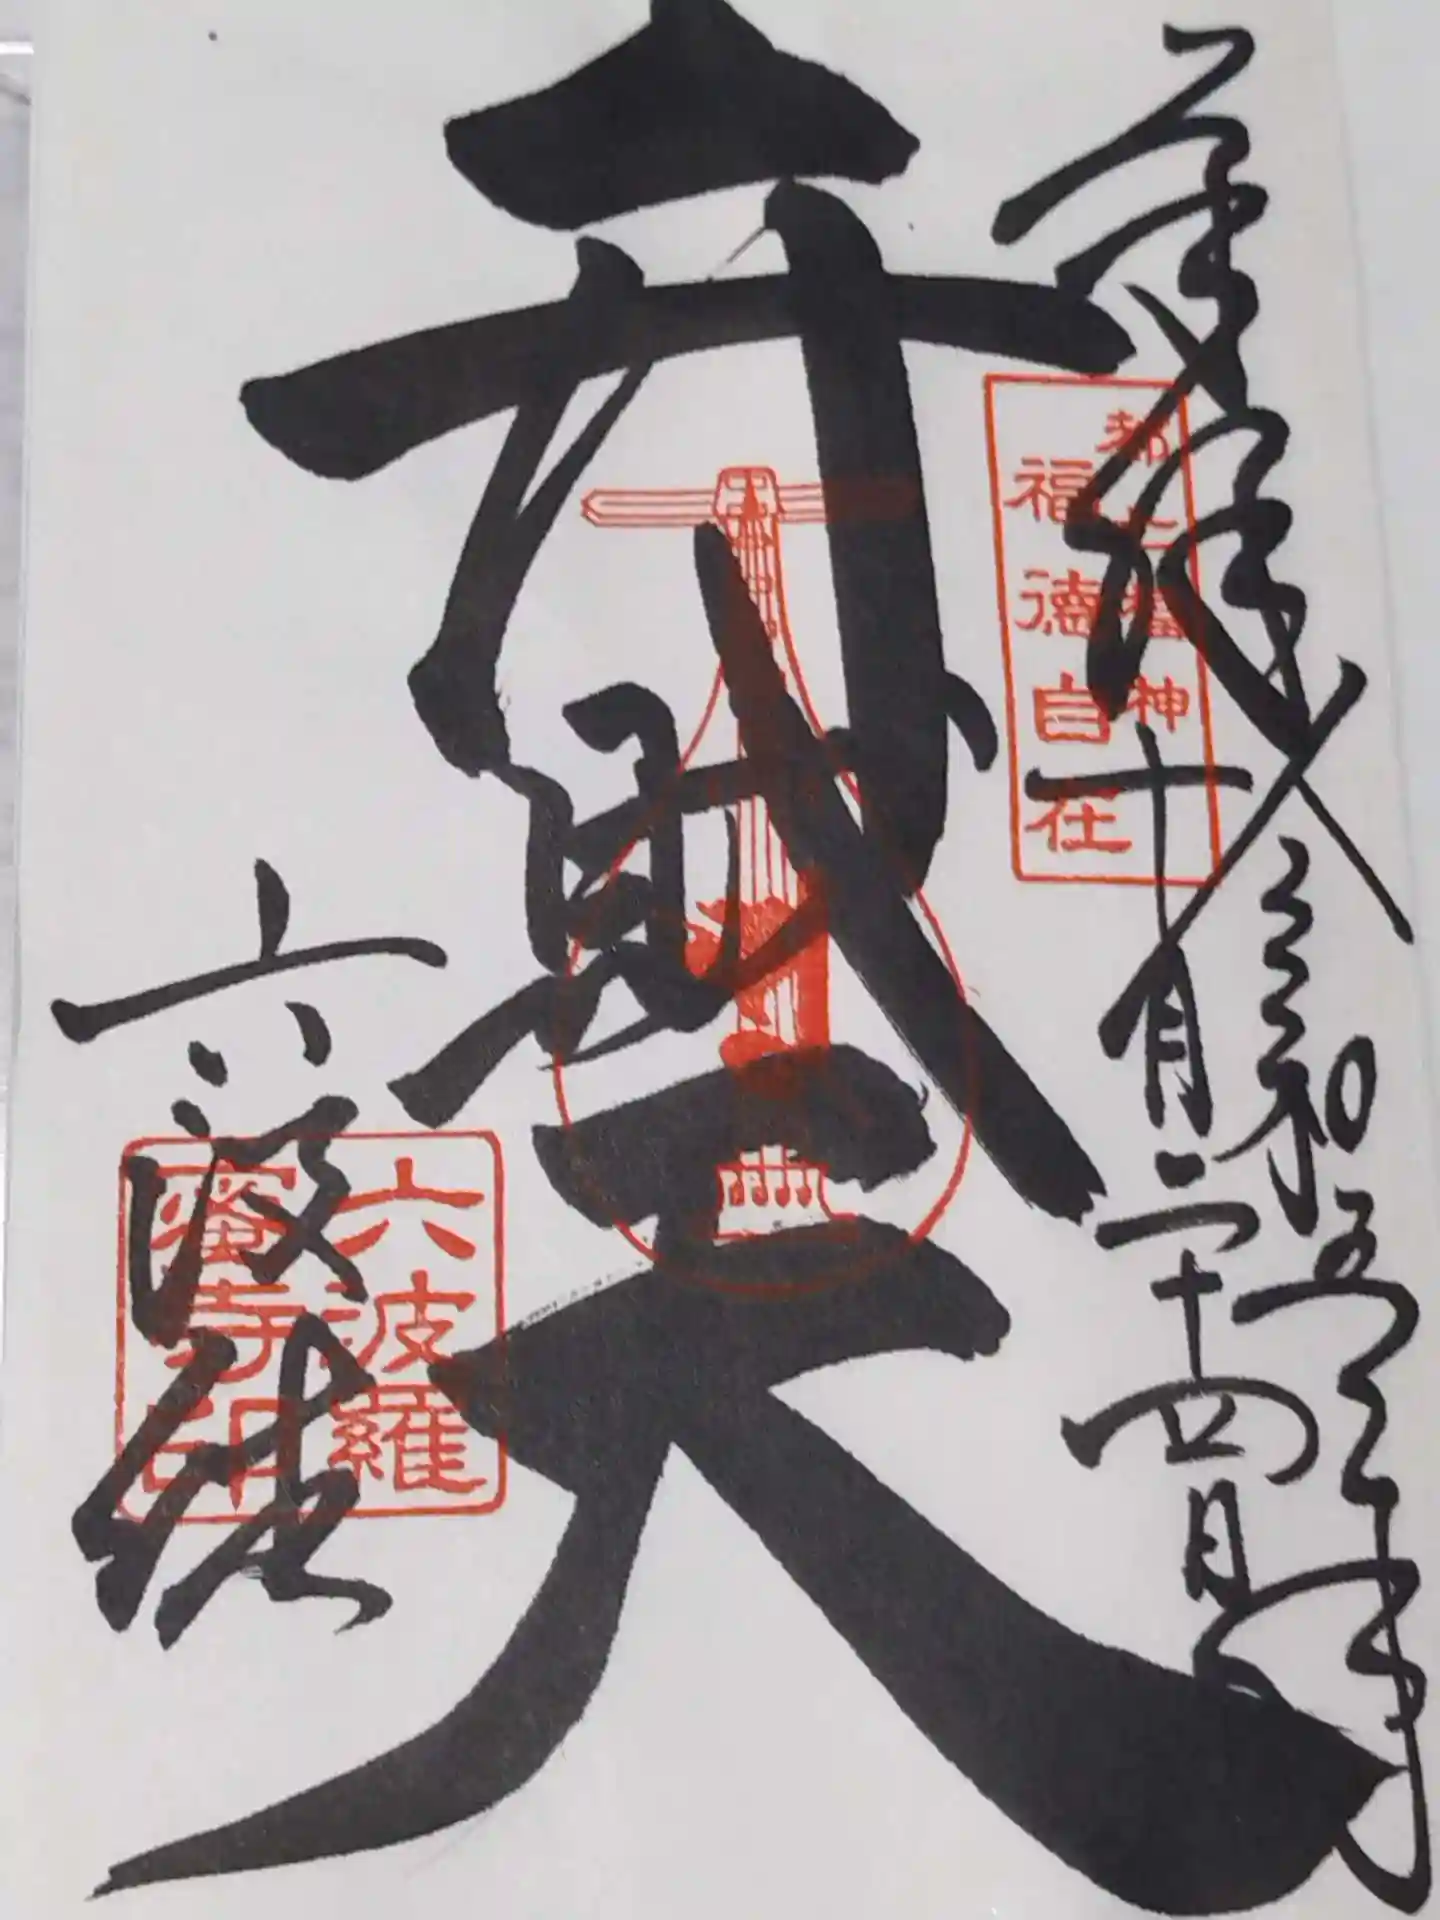 奉拝
令和五年
十月二十四日
都七福神
福徳自在
弁財天
六波
六波羅
蜜寺印